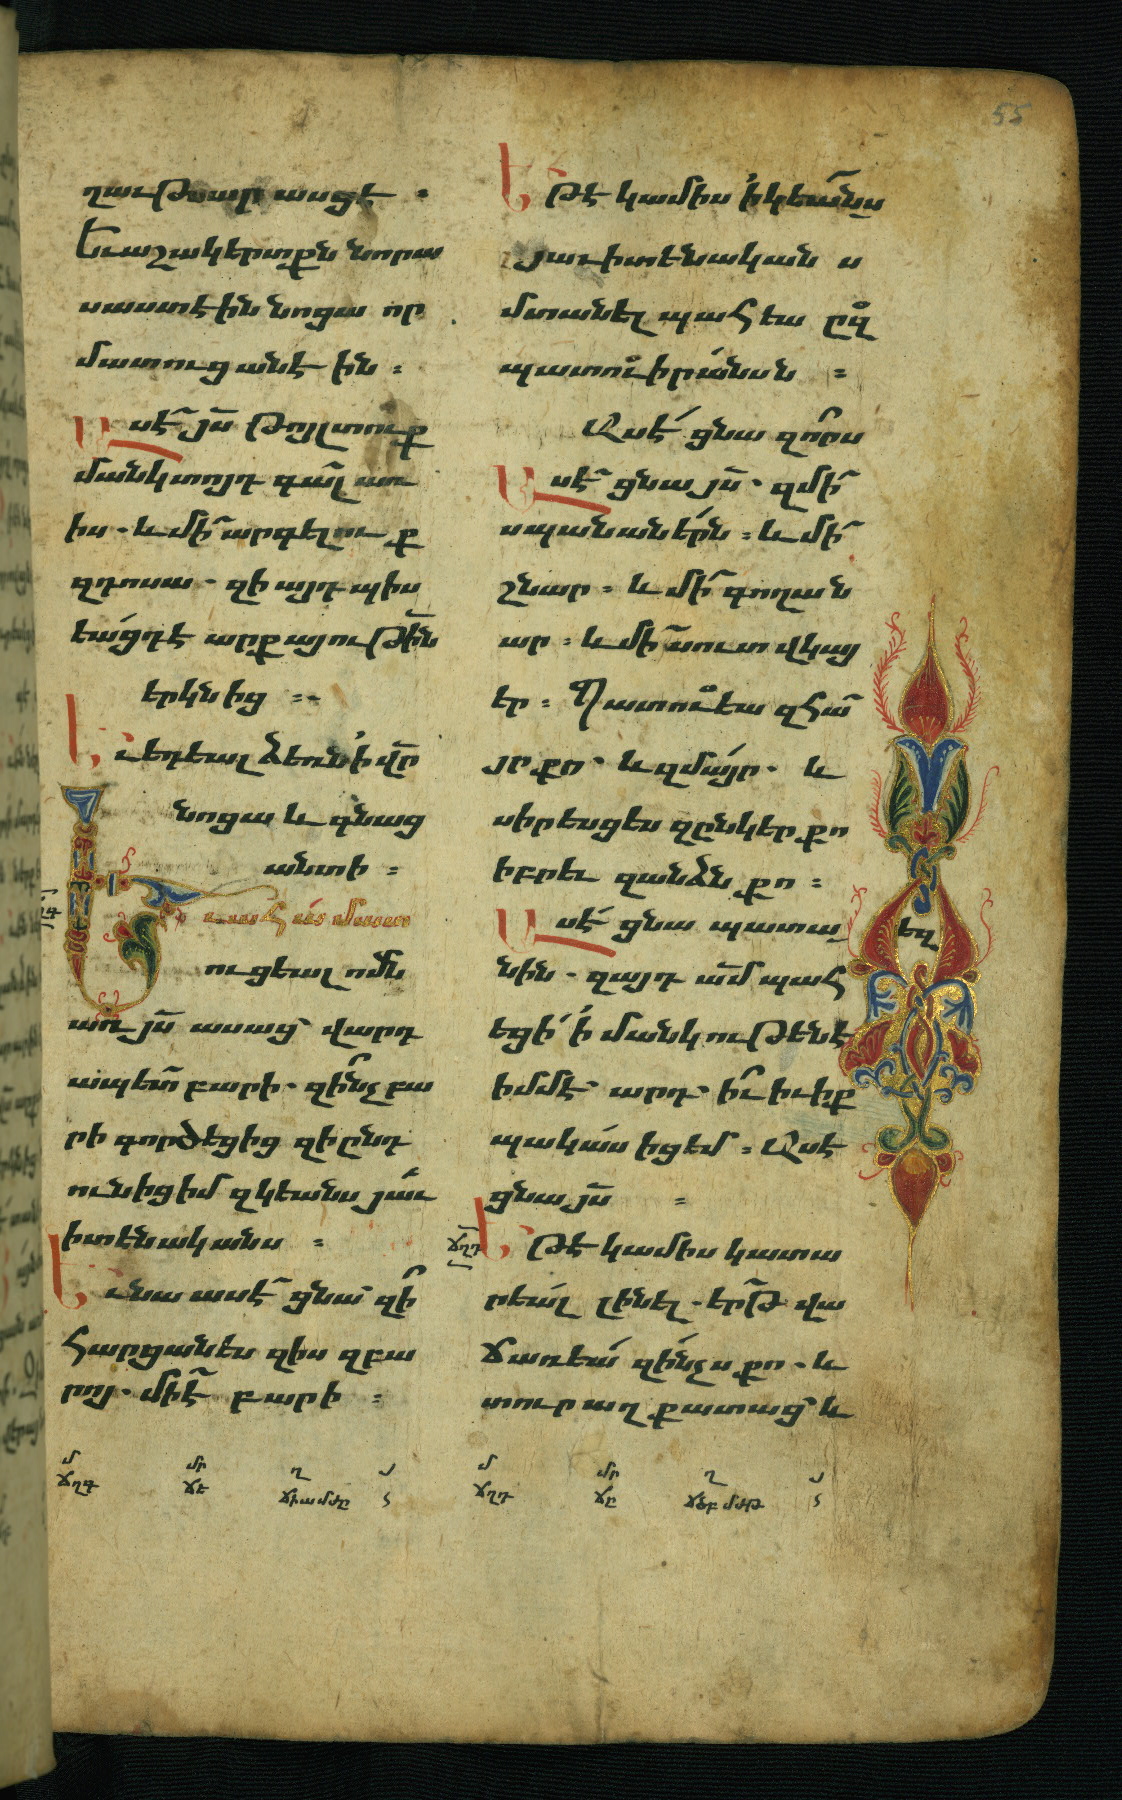 55
ղաւթս արասցէ ։
Եւ աշակերտքն նորա
սաստէին նոցա որ
մատուցանէին ։
Ասէ յս̃ թոյլ տուք
մանկտոյդ գալ առ
իս · և մի՛ արգելուք
զդոսա · զի այդպիս
եացդ է արքայութի̃ն
երկնից ։
Եւ եդեալ ձեռն ի վր̃
նոցա և գնաց
անտի ։
Եւ ահա մատ
ուցեալ ոմն
առ յս̃ ասաց վարդ
ապետ բարի · զի՞նչ բա
րի գործեցից զի ընդ
ունիցիմ զկեանս յաւ
իտենականս ։
Եւ նա ասէ ցնա զի՞
հարցանես զիս զբա
րոյ · մի է բարի ։
Եթէ կամիս ի կեանս
յաւիտենական ս
մտանել պահեա ըզ
պատուիրանսն ։
Ասէ ցնա զո՞րս
Ասէ ցնա յս̃ · զմի՛
սպանաներն ։ և մի՛
շնար ։ և մի՛ գողան
ար ։ և մի՛ սուտ վկայ
եր ։ Պատուեա զհա
յր քո · և զմայր · և
սիրեսցես զընկեր քո
իբրև զանձն քո ։
Ասէ ցնա պատա
եզ
նին · զայդ ամ̃ պահ
եցի ի մանկութենէ
իմմէ արդ իւ իւիք
պակաս իցեմ ։ Ասէ
ցնա յս̃ ։
ճղդ
Եթէ կամիս կատա
րեալ լինել · երթ վա
ճառեա զինչս քո · և
տուր աղքատաց և
մ մր ղ յ
ճղգ ճե
մ մր ղ յ
ճղդ ճը